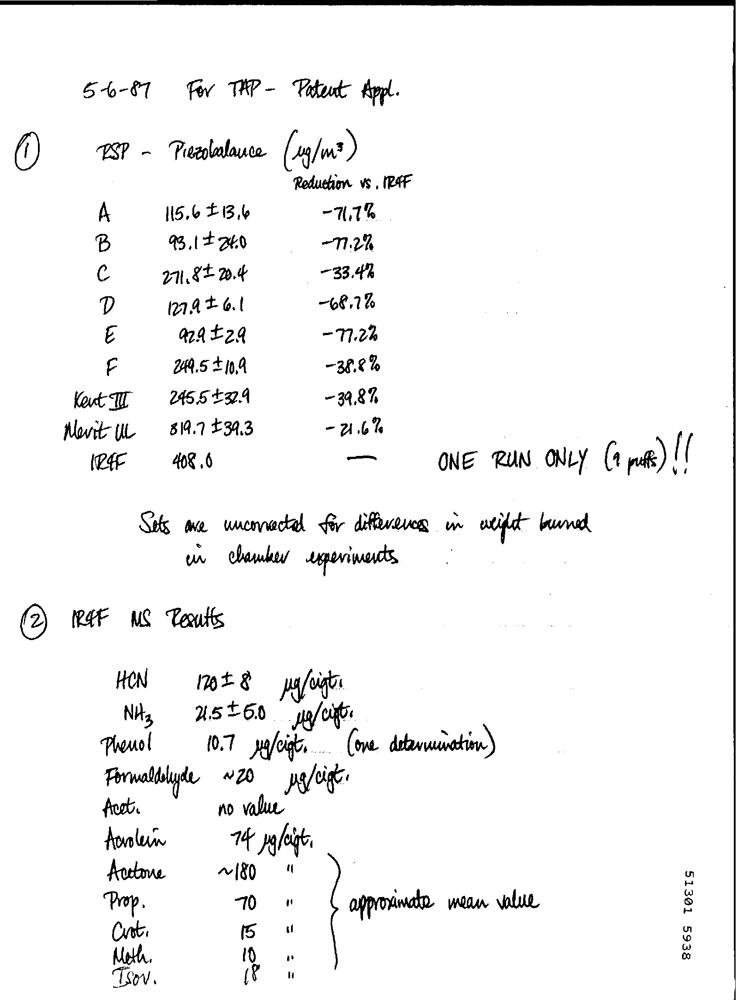 5-6-87 For TAP - Patent Appl.
① RSP - Piezobalance (µg/m³)
Reduction vs. 1R4F
A 115.6 ± 13.6 -71.7%
B 93.1 ± 24.0 -77.2%
C 271.8 ± 20.4 -33.4%
D 127.9 ± 6.1 -68.7%
E 92.9 ± 2.9 -77.2%
F 249.5 ± 10.9 -38.8%
Kent III 245.5 ± 32.9 -39.8%
Merit UL 319.7 ± 39.3 -21.6%
1R4F 408.0 — ONE RUN ONLY (9 puffs)!!
Sets are uncorrected for differences in weight burned
in chamber experiments
② 1R4F MS Results
HCN 120 ± 8 µg/cigt.
NH₃ 21.5 ± 5.0 µg/cigt.
Phenol 10.7 µg/cigt. (one determination)
Formaldehyde ~20 µg/cigt.
Acet. no value
Acrolein 74 µg/cigt.
Acetone ~180 "
Prop. 70 " approximate mean value
Crot. 15 "
Meth. 10 "
Isov. 18 "
51301 5938